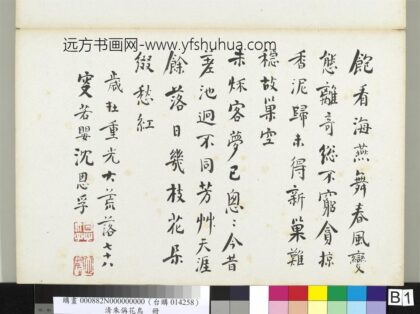 远方书画网-www.yfshuhua.com
飽看海燕舞春風變
態離奇總不窮貪掠
香泥歸未得新巢難
穩故巢空
未客夢已悤〻今昔
差池迥不同芳艸天涯
餘落日幾枝花朵
綴愁紅
歲在重光大荒落七十八
叟若嬰沈恩孚
購畫 000882N000000000 (台購 014258)
清朱偁花鳥 冊
B1